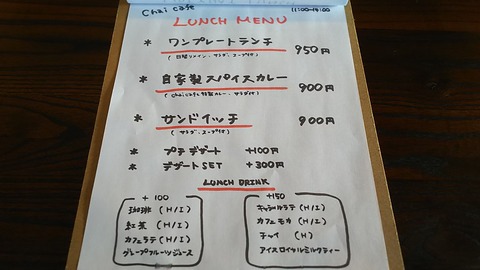 Chai cafe 11:00~14:00
LUNCH MENU
* ワンプレートランチ 950円
(日替りメイン、サラダ、スープ付)
* 自家製スパイスカレー 900円
(chai cafe特製カレー、サラダ付)
* サンドイッチ 900円
(サラダ、スープ付)
* プチデザート +100円
* デザートSET +300円
LUNCH DRINK
+100
珈琲 (H/I)
紅茶 (H/I)
カフェラテ (H/I)
グレープフルーツジュース
+150
キャラメルラテ (H/I)
カフェモカ (H/I)
チャイ (H)
アイスロイヤルミルクティー